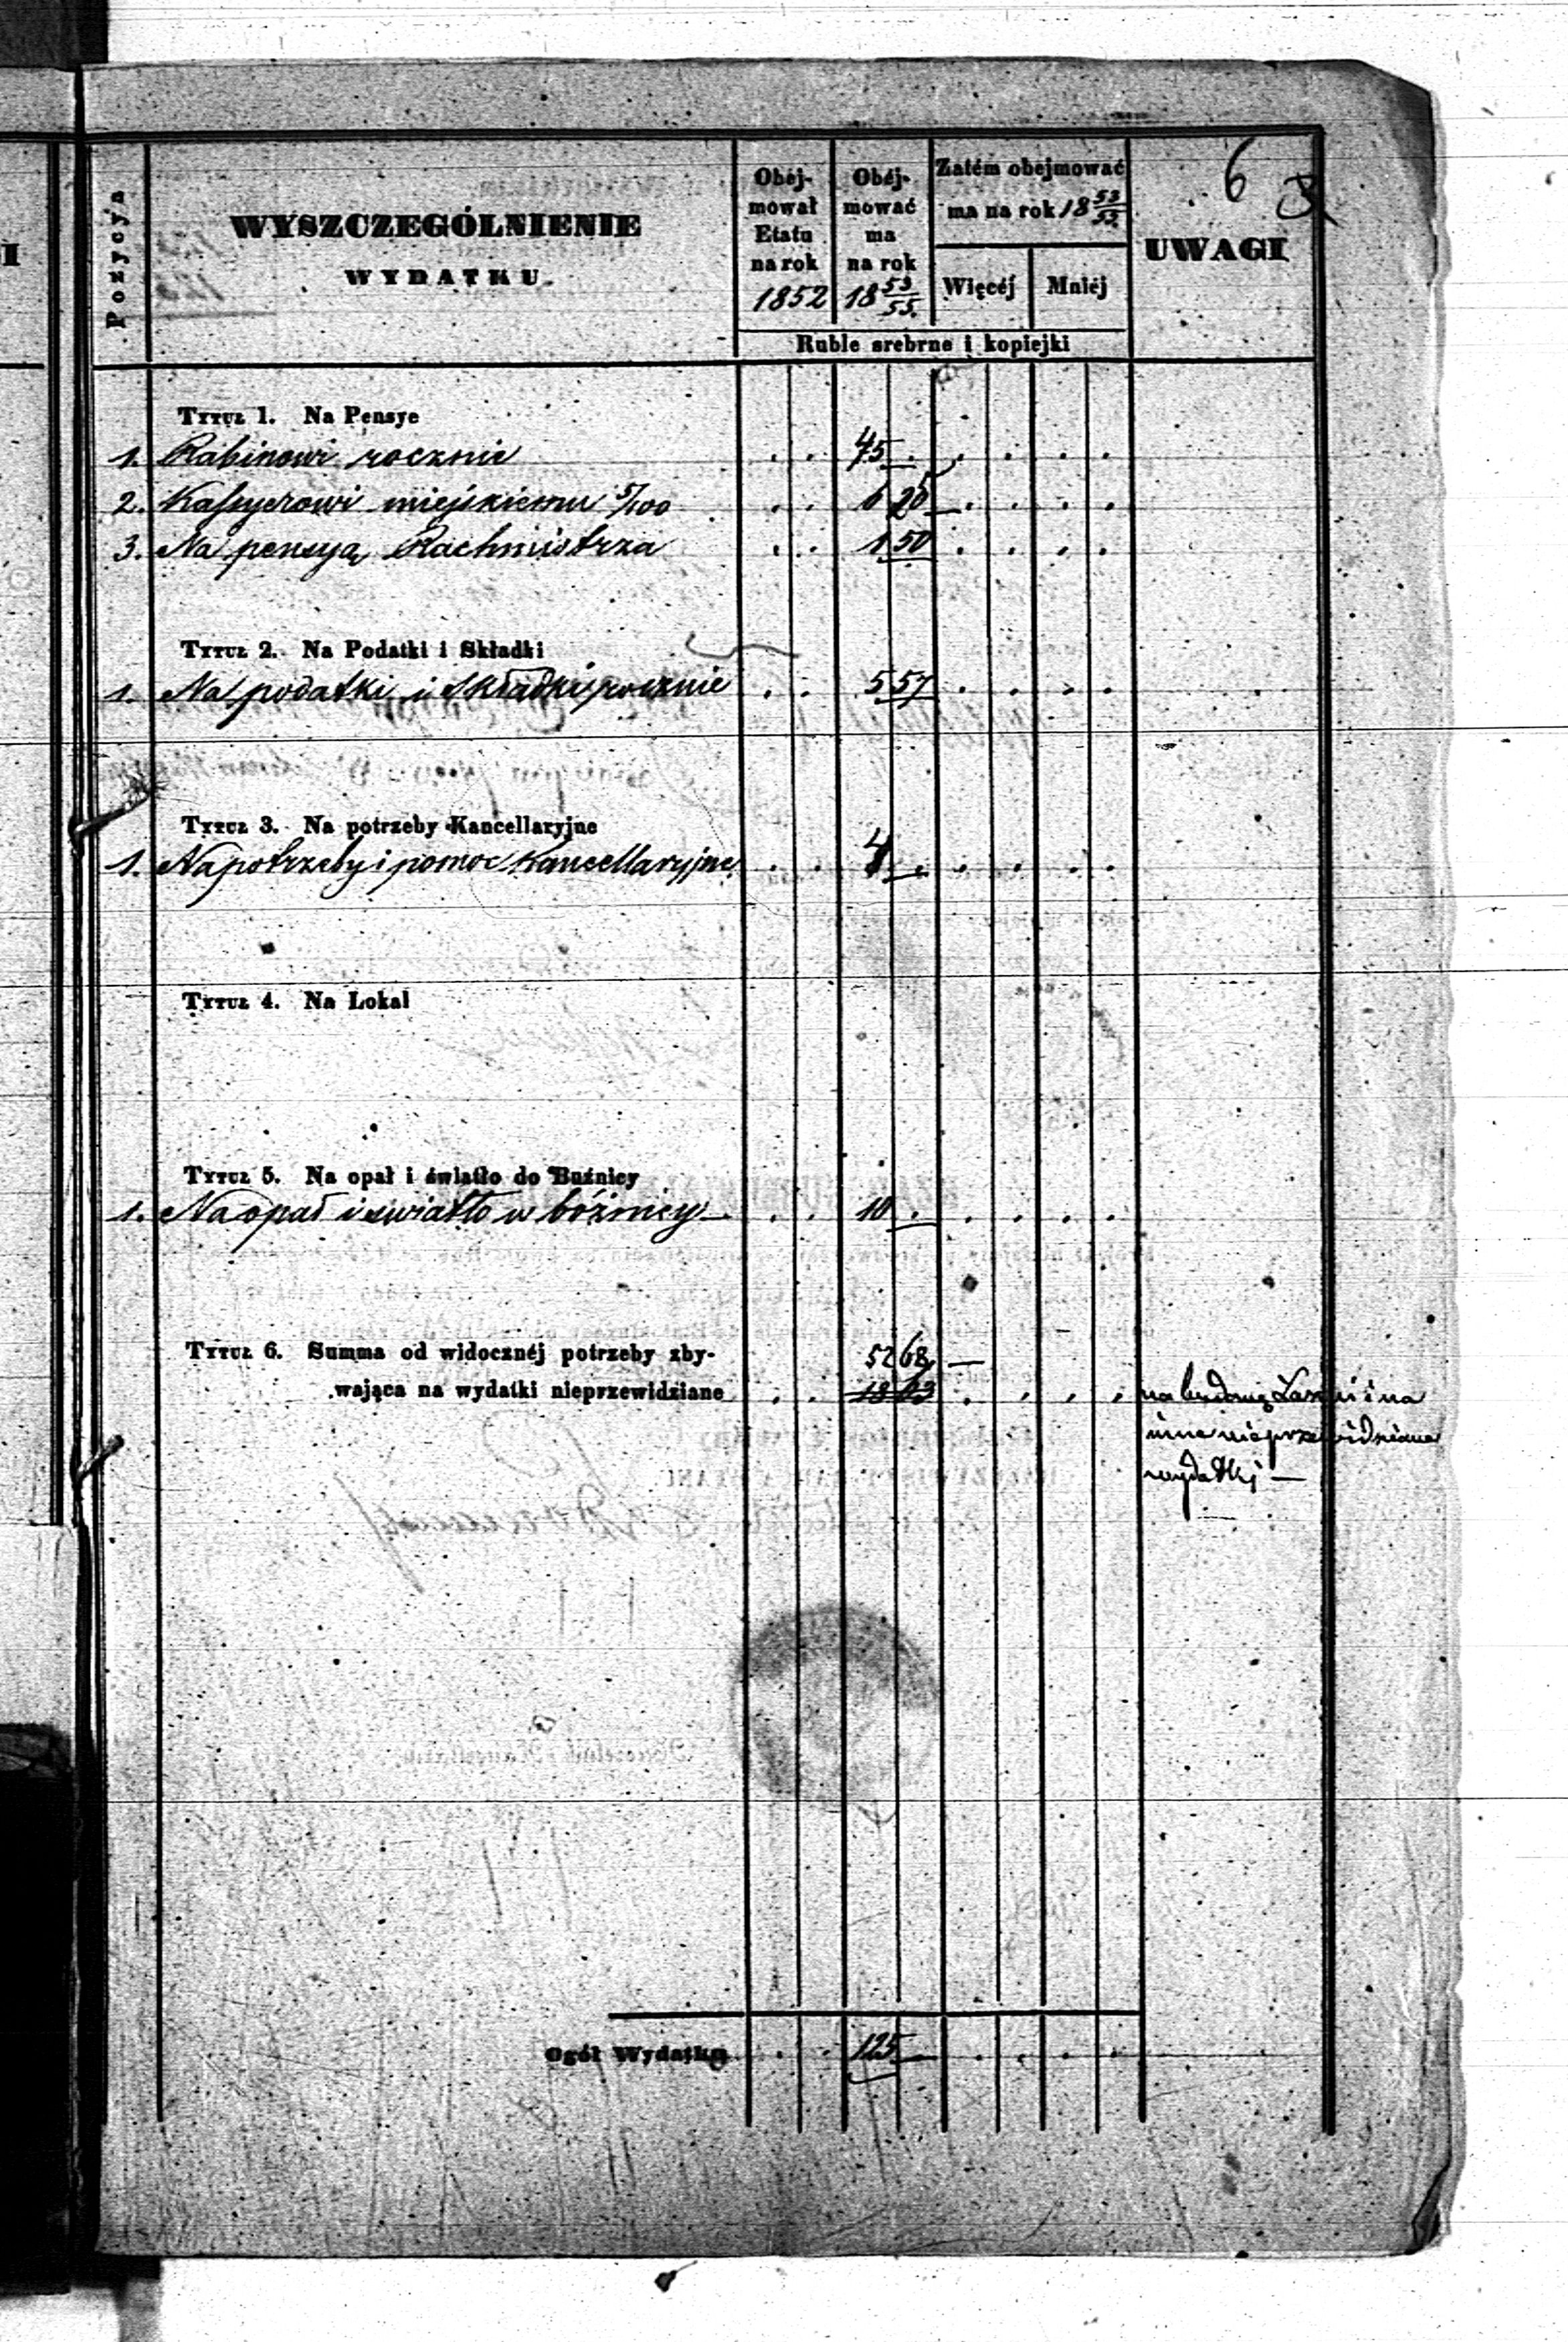 6
Pozycya
WYSZCZEGÓLNIENIE
WYDATKU.
Obej-
mował
Etatu
na rok
1852
Obéj-
mować
ma
na rok
18 53/55.
Zatém obejmować
ma na rok 18 53/55.
Więcéj
Mniéj
UWAGI
Ruble srebrne i kopiejki
Tytuł 1. Na Pensye
1. Rabinowi rocznie . . 45 . . . . .
2. Kassyerowi miejskiemu 5/100 . . 6 25 . . . .
3. Na pensyą Rachmistrza . . 1 50 . . . .
Tytuł 2. Na Podatki i Składki
1. Na podatki i składki rocznie . . 5 57 . . . .
Tytuł 3. Na potrzeby Kancellaryjne
1. Na potrzeby i pomoc Kancellaryjne . . 4 . . . . .
Tytuł 4. Na Lokal
Tytuł 5. Na opał i światło do Buźnicy
1. Na opał i światło w bóżnicy . . 10 . . . . .
Tytuł 6. Summa od widocznéj potrzeby zby- 52 68 —
wająca na wydatki nieprzewidziane . . . . . .
na budowę Łazni i na
inne nieprzewidziane
wydatki —
Ogół Wydatku . . 125 — . . . .